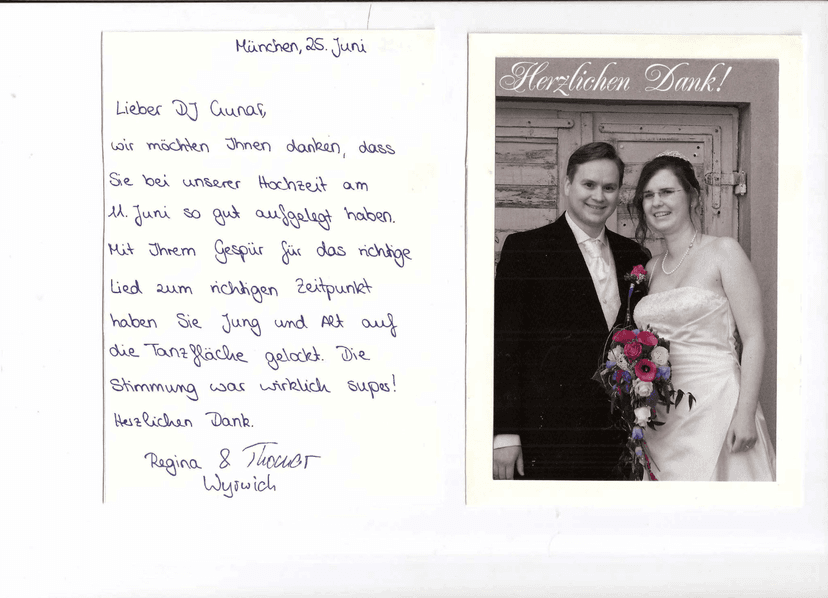 München, 25. Juni
Lieber DJ Gunar,
wir möchten Ihnen danken, dass
Sie bei unserer Hochzeit am
11. Juni so gut aufgelegt haben.
Mit Ihrem Gespür für das richtige
Lied zum richtigen Zeitpunkt
haben Sie Jung und Alt auf
die Tanzfläche gelockt. Die
Stimmung war wirklich super!
Herzlichen Dank.
Regina & Thomas
Herzlichen Dank!